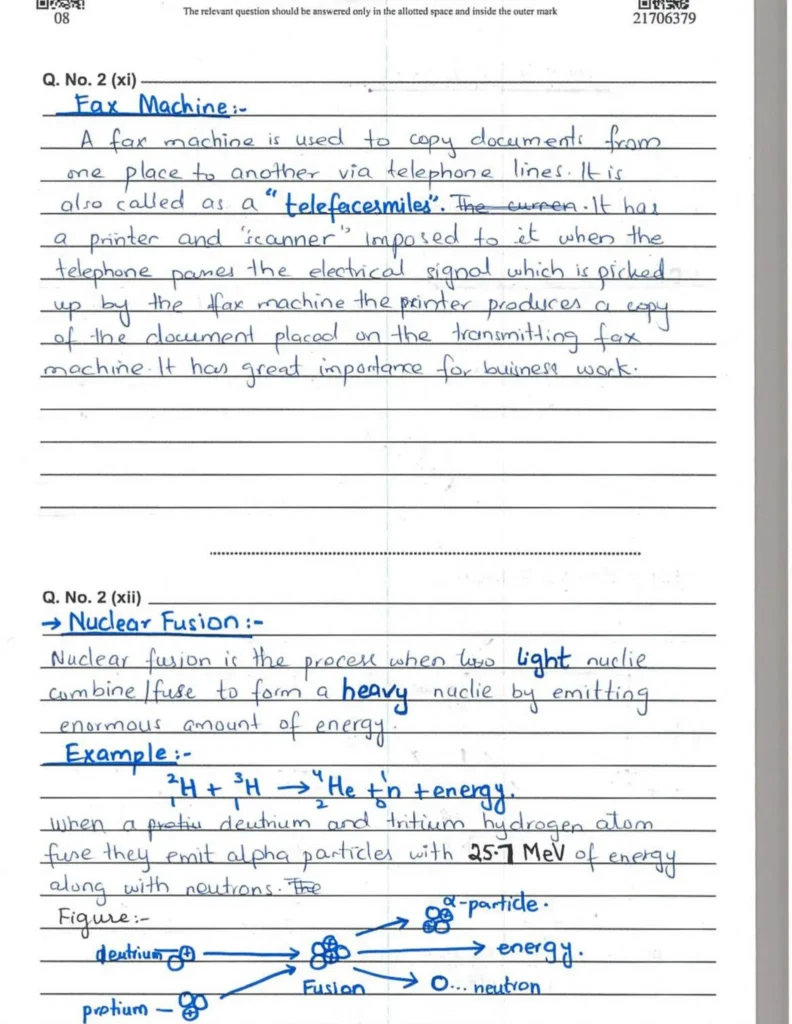 08
The relevant question should be answered only in the allotted space and inside the outer mark
21706379
Q. No. 2 (xi)
Fax Machine:-
A fax machine is used to copy documents from
one place to another via telephone lines. It is
also called as a "telefacesmiles". The curren. It has
a printer and "scanner" imposed to it when the
telephone passes the electrical signal which is picked
up by the fax machine the printer produces a copy
of the document placed on the transmitting fax
machine. It has great importance for buisness work.
Q. No. 2 (xii)
→ Nuclear Fusion:-
Nuclear fusion is the process when two light nuclie
combine/fuse to form a heavy nuclie by emitting
enormous amount of energy.
Example:-
²₁H + ³₁H → ⁴₂He + ¹₀n + energy.
When a protiu deutrium and tritium hydrogen atom
fuse they emit alpha particles with 25.7 MeV of energy
along with neutrons. The
Figure:-
α-particle.
deutrium
energy.
Fusion
O... neutron
protium